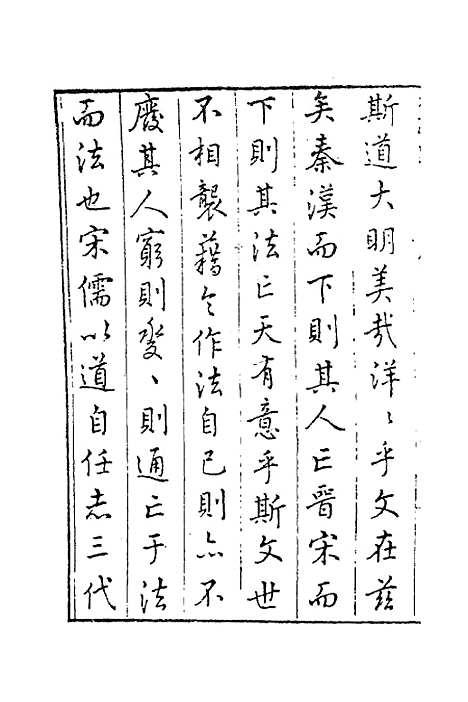 斯道大明美哉洋〻乎文在茲
矣秦漢而下則其人亡晉宋而
下則其法亡天有意乎斯文世
不相襲藉令作法自己則亦不
廢其人窮則變〻則通亡于法
而法也宋儒以道自任志三代